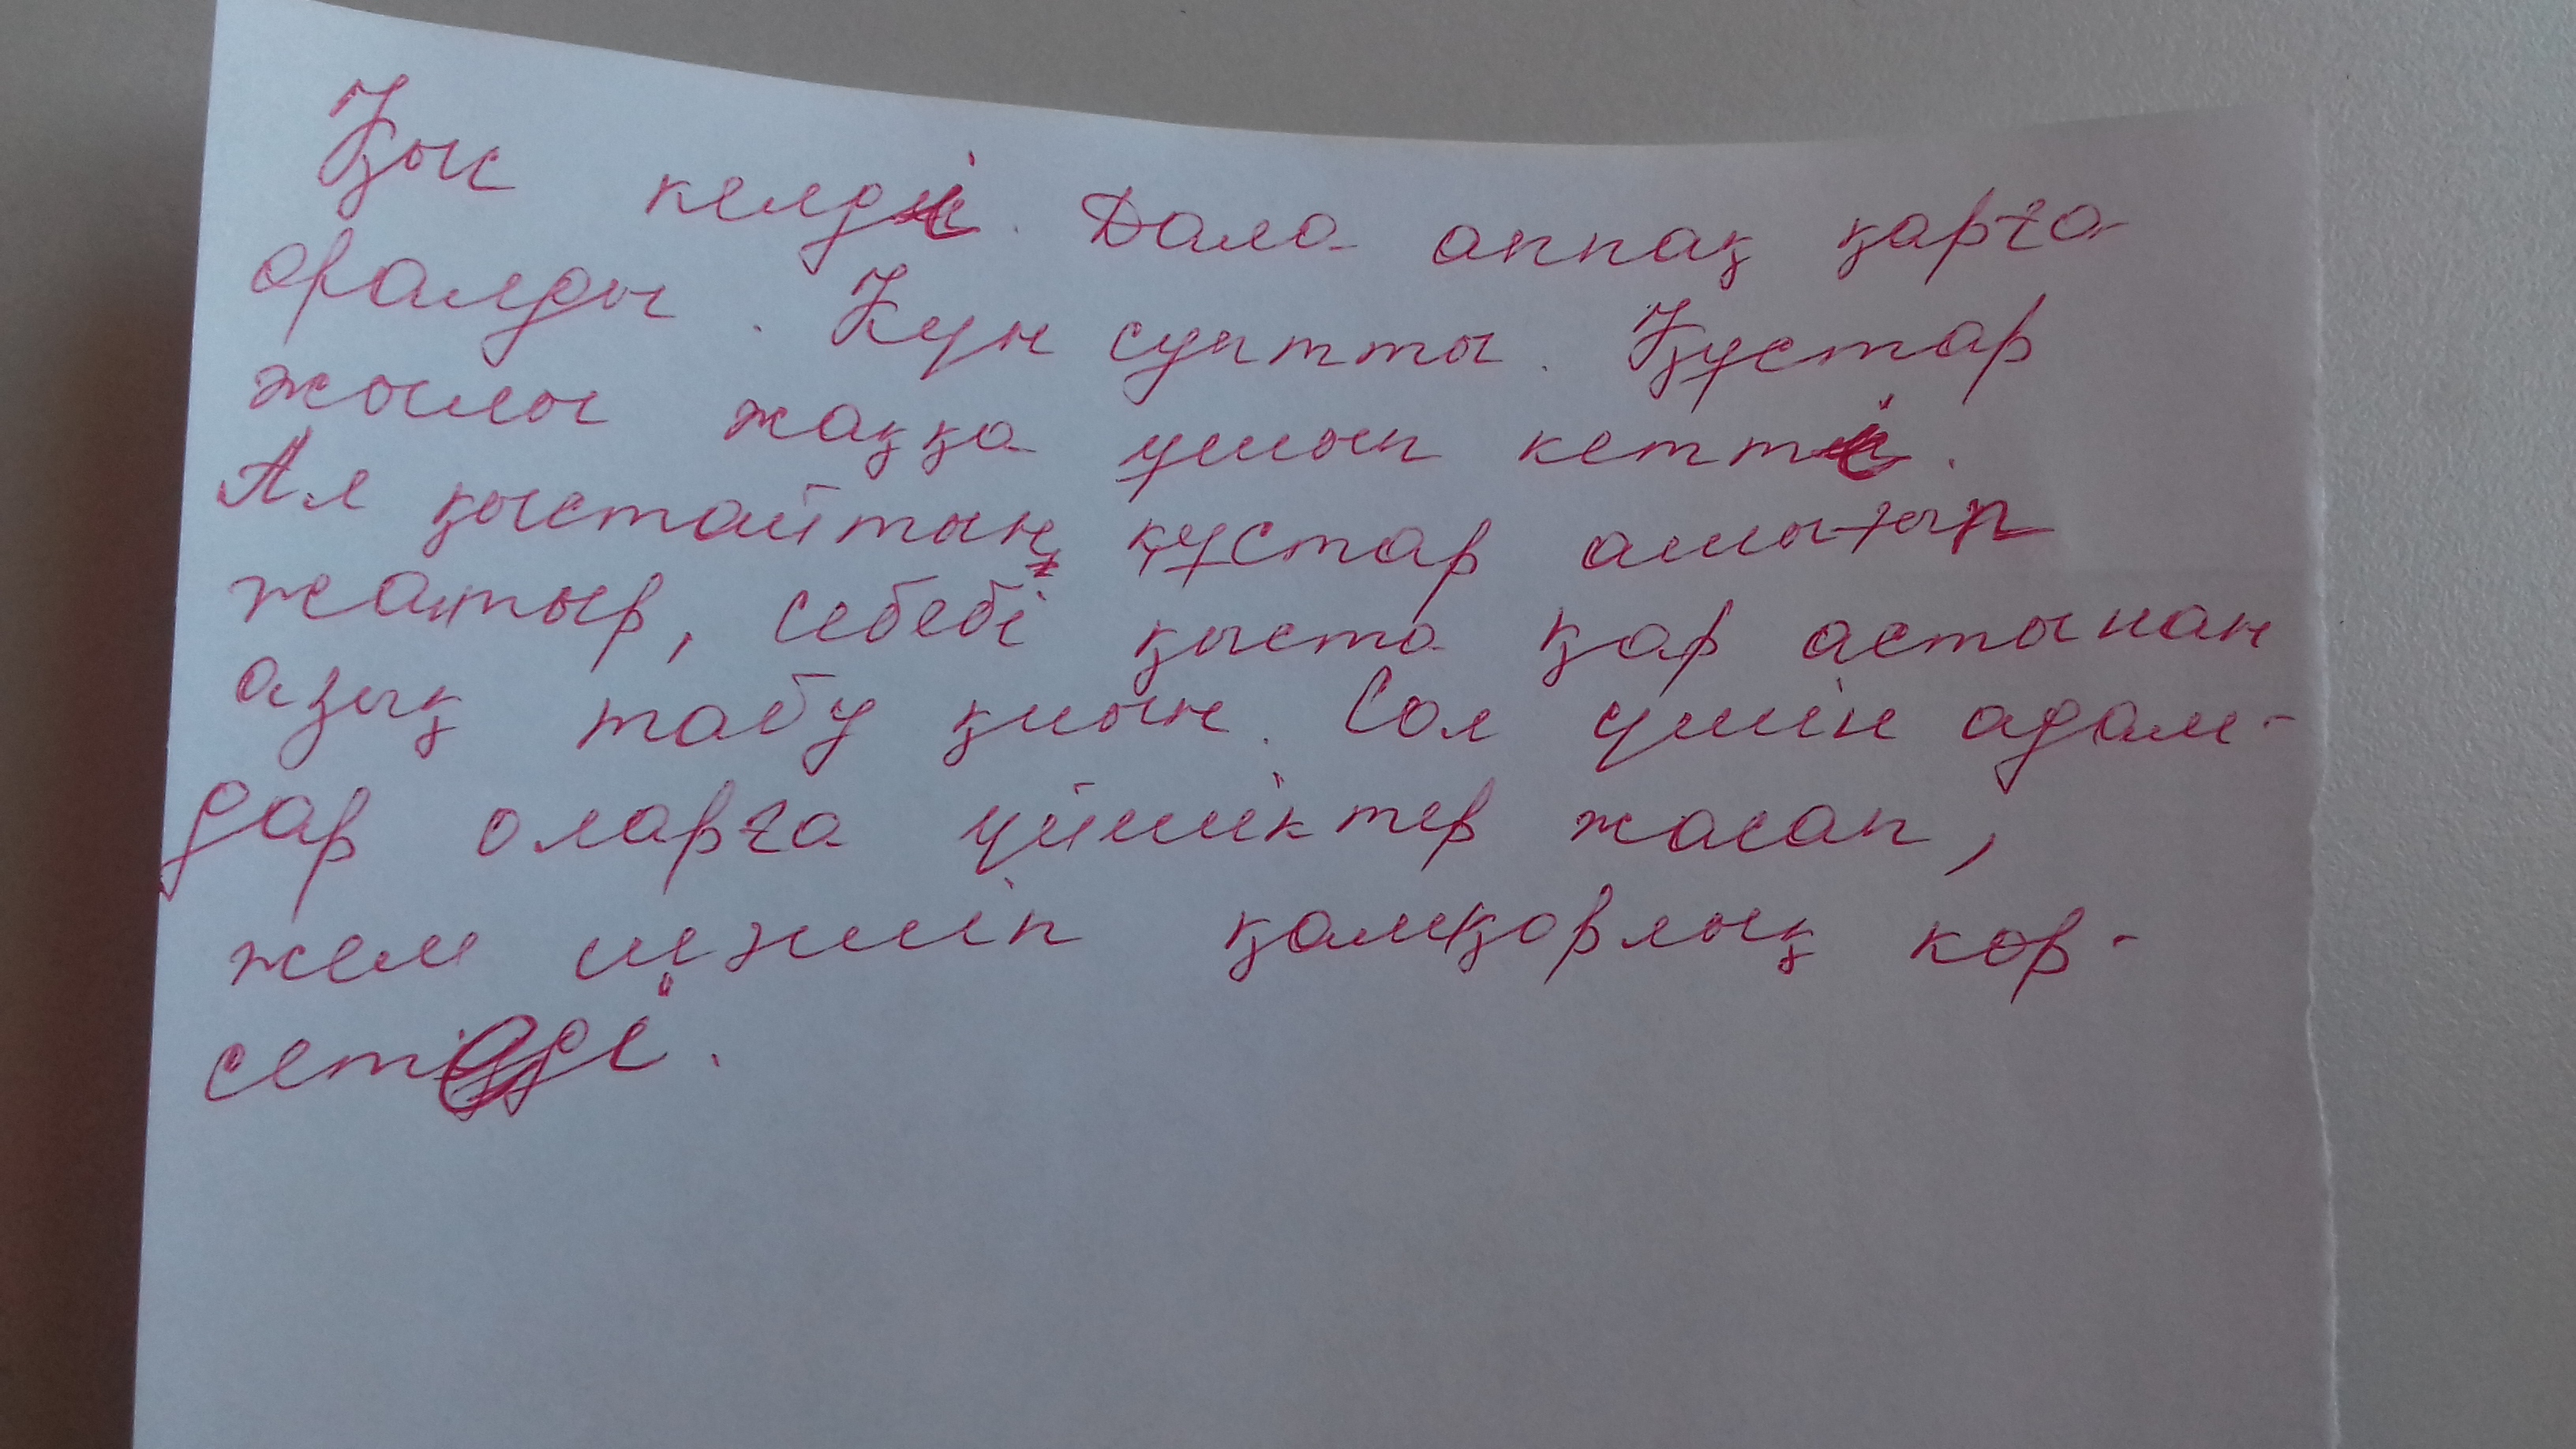 Қыс келді. Дала аппақ қарға
оралды. Күн суытты. Құстар
жылы жаққа ұшып кетті.
Ал қыстайтын құстар ашығып
жатыр, себебі қыста қар астынан
азық табу қиын. Сол үшін адам-
дар оларға үйшіктер жасап,
жем шашып қамқорлық көр-
сетеді.